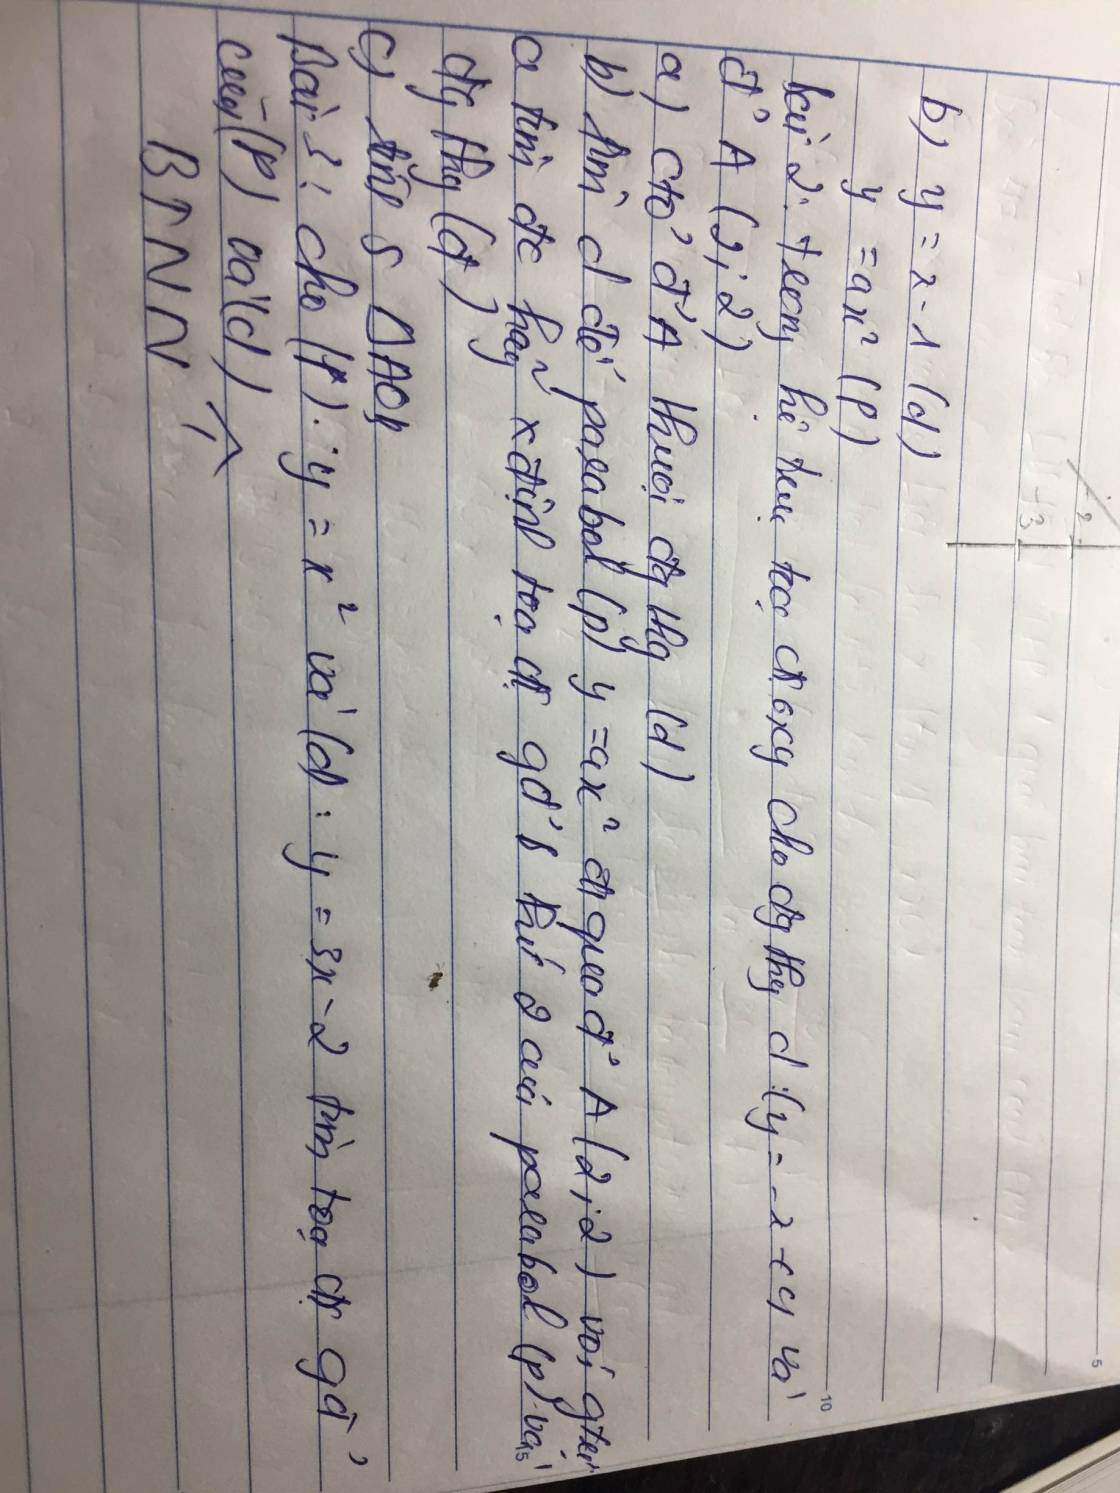 b) y = x - 1 (d)
y = ax² (P)
bài 2: trong hệ trục tọa đr oxy cho đg thg d: (y = -x + 4 và
đ' A (2; 2)
a) cto' đ' A thuộc đg thg (d)
b) tìm d để parabol (p) y = ax² đi qua đ' A (2; 2) với gtrị
a tìm đc hãy xđịnh tọa đr gđ' B thứ 2 của parabol (p) và
đg thg (d)
c) tính S △AOB
Bài 3: cho (P): y = x² và (d): y = 3x - 2 tìm tọa đr gđ'
của (P) và (d)
BTNN
-2
-3
5
10
15